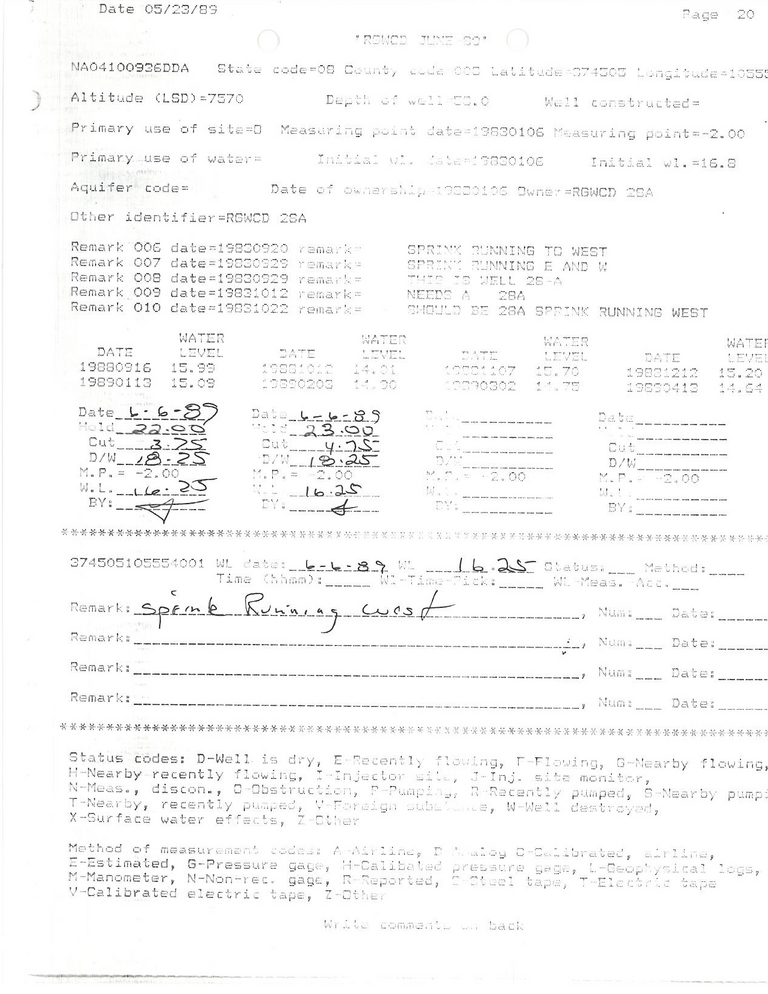 Date 05/23/89 Page 20
"RGWCD JUNE 89"
NA04100936DDA State code=08 County code 003 Latitude=374505 Longitude=10555
Altitude (LSD)=7570 Depth of well Well constructed=
Primary use of site=O Measuring point date=19830106 Measuring point=-2.00
Primary use of water= Initial wl. date=19830106 Initial wl.=16.8
Aquifer code= Date of ownership 19830106 Owner=RGWCD 28A
Other identifier=RGWCD 28A
Remark 006 date=19830920 remark= SPRINK RUNNING TO WEST
Remark 007 date=19830929 remark= SPRINK RUNNING E AND W
Remark 008 date=19830929 remark= THIS IS WELL 28-A
Remark 009 date=19831012 remark= NEEDS A 28A
Remark 010 date=19831022 remark= SHOULD BE 28A SPRINK RUNNING WEST
WATER WATER WATER WATER
DATE LEVEL DATE LEVEL DATE LEVEL DATE LEVEL
19880916 15.99 19881012 14.01 19881107 15.70 19881212 15.20
19890113 15.09 19890203 14.90 19890302 14.75 19890413 14.64
Date 6-6-89 Date 6-6-89 Date Date
Hold 22.00 Hold 23.00
Cut 3.75 Cut 4.75 Cut
D/W 18.25 D/W 18.25 D/W D/W
M.P.= -2.00 M.P.= -2.00 M.P.= -2.00 M.P.= -2.00
W.L. 16.25 W.L. 16.25 W.L. W.L.
BY: BY: BY: BY:
********************************************************************************
374505105554001 WL date: 6-6-89 WL 16.25 Status:___ Method:____
Time (hhmm):_____ Wl-Time-Pick:_____ WL-Meas.-Acc.___
Remark: Sprink Running west, Num:___ Date:
Remark:, Num:___ Date:
Remark:, Num:___ Date:
Remark:, Num:___ Date:
********************************************************************************
Status codes: D-Well is dry, E-Recently flowing, F-Flowing, G-Nearby flowing,
H-Nearby recently flowing, I-Injector site, J-Inj. site monitor,
N-Meas., discon., O-Obstruction, P-Pumping, R-Recently pumped, S-Nearby pumpi
T-Nearby, recently pumped, V-Foreign substance, W-Well destroyed,
X-Surface water effects, Z-Other
Method of measurement codes: A-Airline, B Analog C-Calibrated, airline,
E-Estimated, G-Pressure gage, H-Calibated pressure gage, L-Geophysical logs,
M-Manometer, N-Non-rec. gage, R-Reported, S-Steel tape, T-Electric tape
V-Calibrated electric tape, Z-Other
Write comments on back